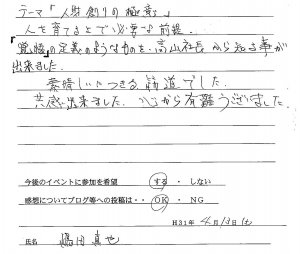 テーマ「人財創りの極意」
人を育てる上で必要な前提。
「覚悟」の定義のようなものを、高山社長から知る事が
出来ました。
素晴しいにつきる、筋道でした。
共感出来ました。心から有難うございました。
今後のイベントに参加を希望 する ・ しない
感想についてブログ等への投稿は・・ OK ・ NG
H31年 4月13日(土)
氏名 嶋田真也